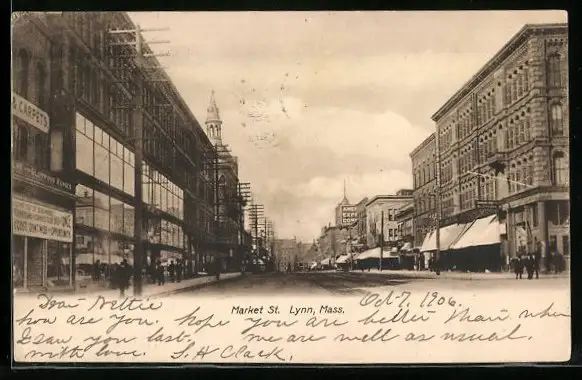 & CARPETS
Market St. Lynn, Mass.
Oct-7, 1906.
Dear Nettie
how are you. hope you are better than when
I saw you last. we are well as usual.
with love. S. A Clark.